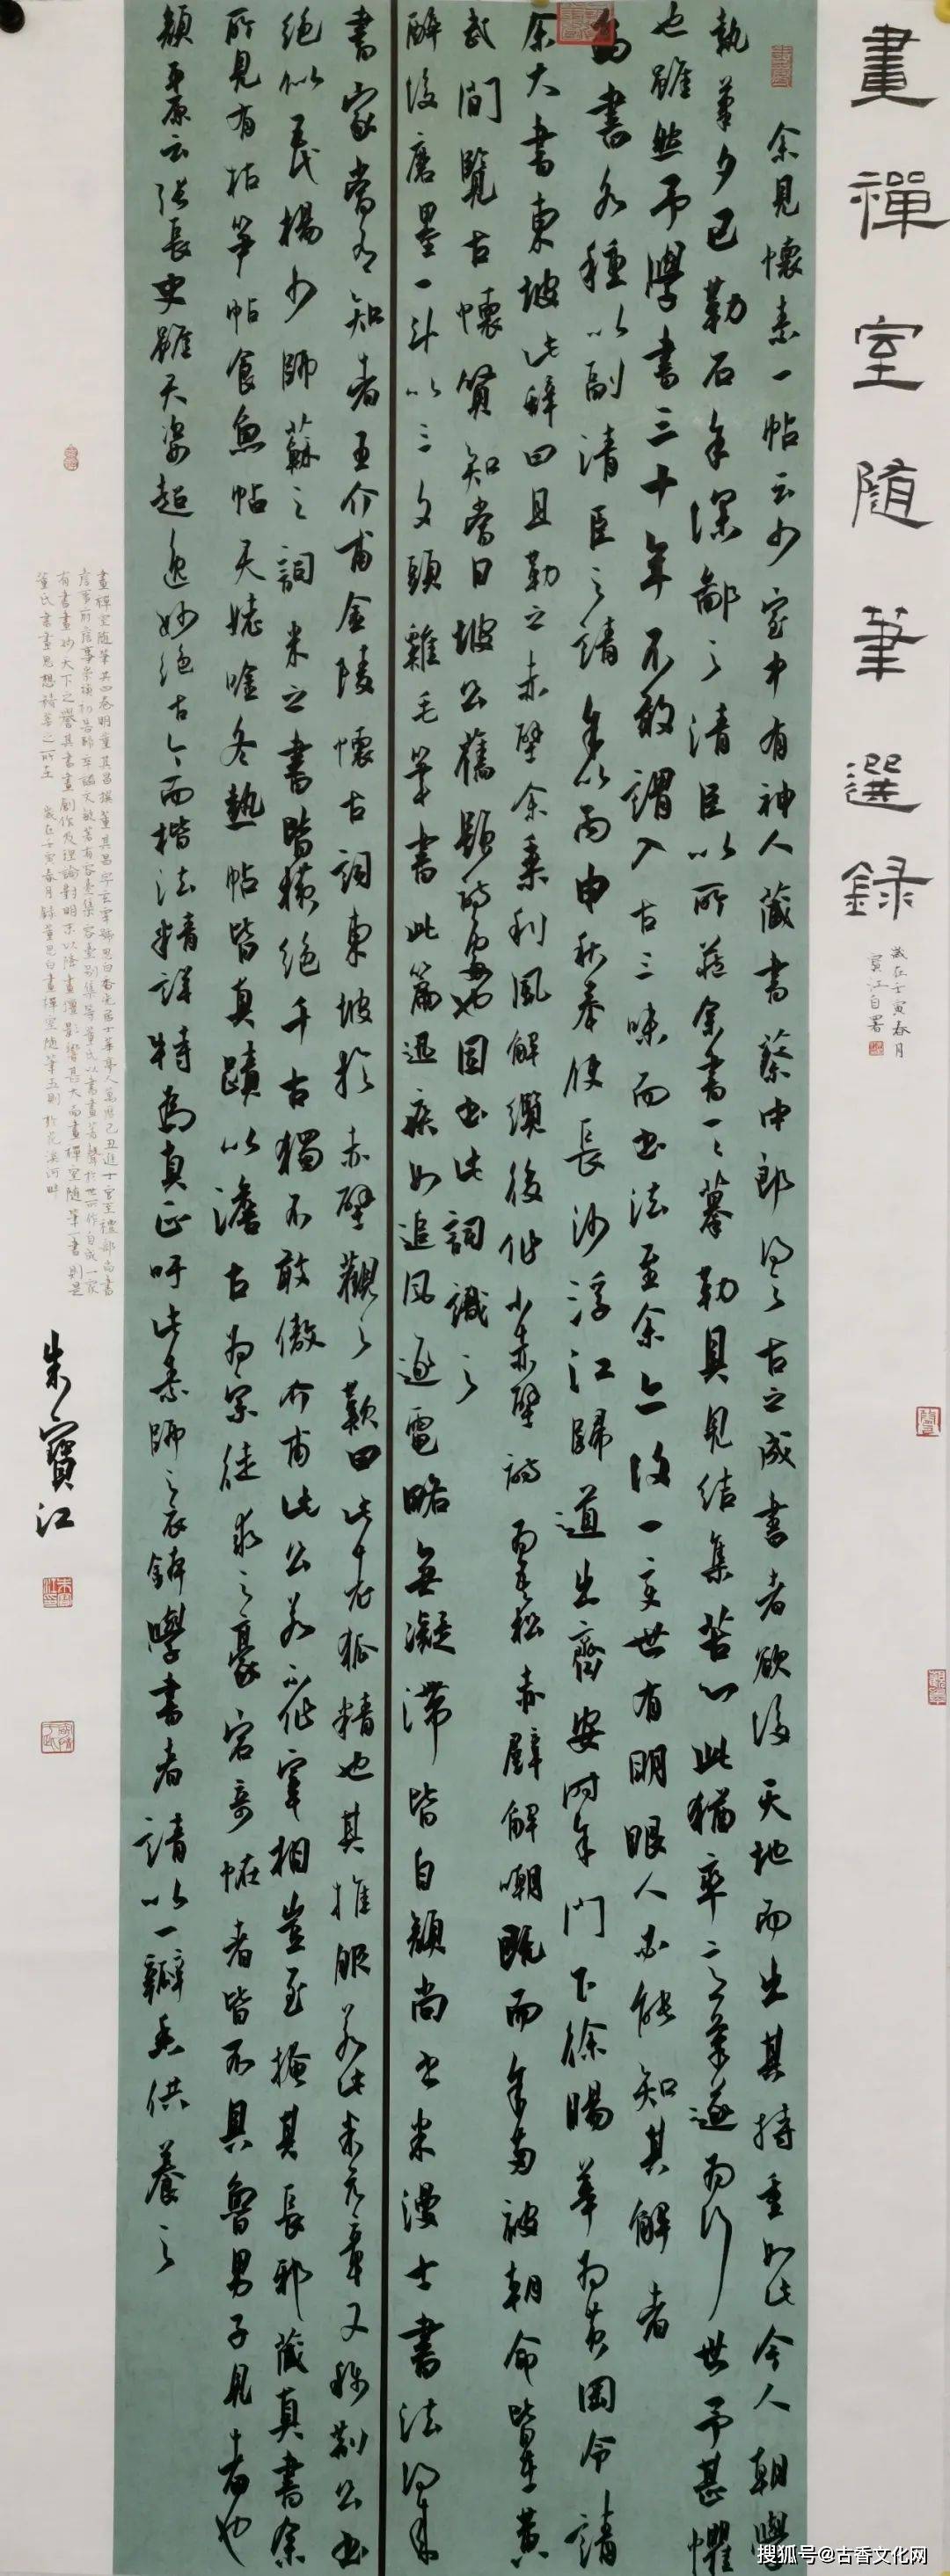 畫禪室随筆選錄
歲在壬寅春月
寶江自署
余見懷素一帖云少室中有神人藏書蔡中郎得之古之成書者欲後天地而出其持重如此今人朝學
執筆夕已勒石余深鄙之清臣以所藏余書一一摹勒具見結集苦心此猶率意筆遂為行世予甚懼
也雖然予學書三十年不敢謂入古三昧而書法至余亦復一變世有明眼人必能知其解者
為書各種以副清臣之請
余以丙申秋奉使長沙浮江歸道出齊安時余門下徐暘華為黄岡令請
余大書東坡此辭曰且勒之赤壁余乘利風解纜後作小赤壁詩為吾松赤壁解嘲既而余両被朝命皆在黄
武間覽古懷賢知當日坡公舊題詩處也因書此詞識之
醉後磨墨一斗以三文頭雞毛筆書此篇迅疾如追風逐電略無凝滯皆自顏尚書米漫士書法得來
書家當有知者王介甫金陵懷古詞東坡於赤壁觀之歎曰此老狐精也其推服若此米元章又称荊公書
絕似五代楊少師蘇之詞米之書皆横絕千古獨不敢傲介甫此公若不作宰相豈至掩其長邪藏真書余
所見有枯筍帖食魚帖天姥唫冬熱帖皆真蹟以澹古為宗徒求之豪宕奇怪者皆不具魯男子見者也
顏平原云張長史雖天姿超逸妙絕古今而楷法精詳特為真正吁此素師之衣鉢學書者請以一瓣香供養之
畫禪室隨筆共四卷明董其昌撰董其昌字玄宰號思白香光居士華亭人萬曆己丑進士官至禮部尚書
有書畫妙天下之譽其書畫創作及理論對明末以降畫壇影響甚大而畫禪室隨筆一書則是
董氏書畫思想 歲在壬寅春月錄董思白畫禪室隨筆五則於花溪河畔
朱寶江
搜狐号@古香文化网